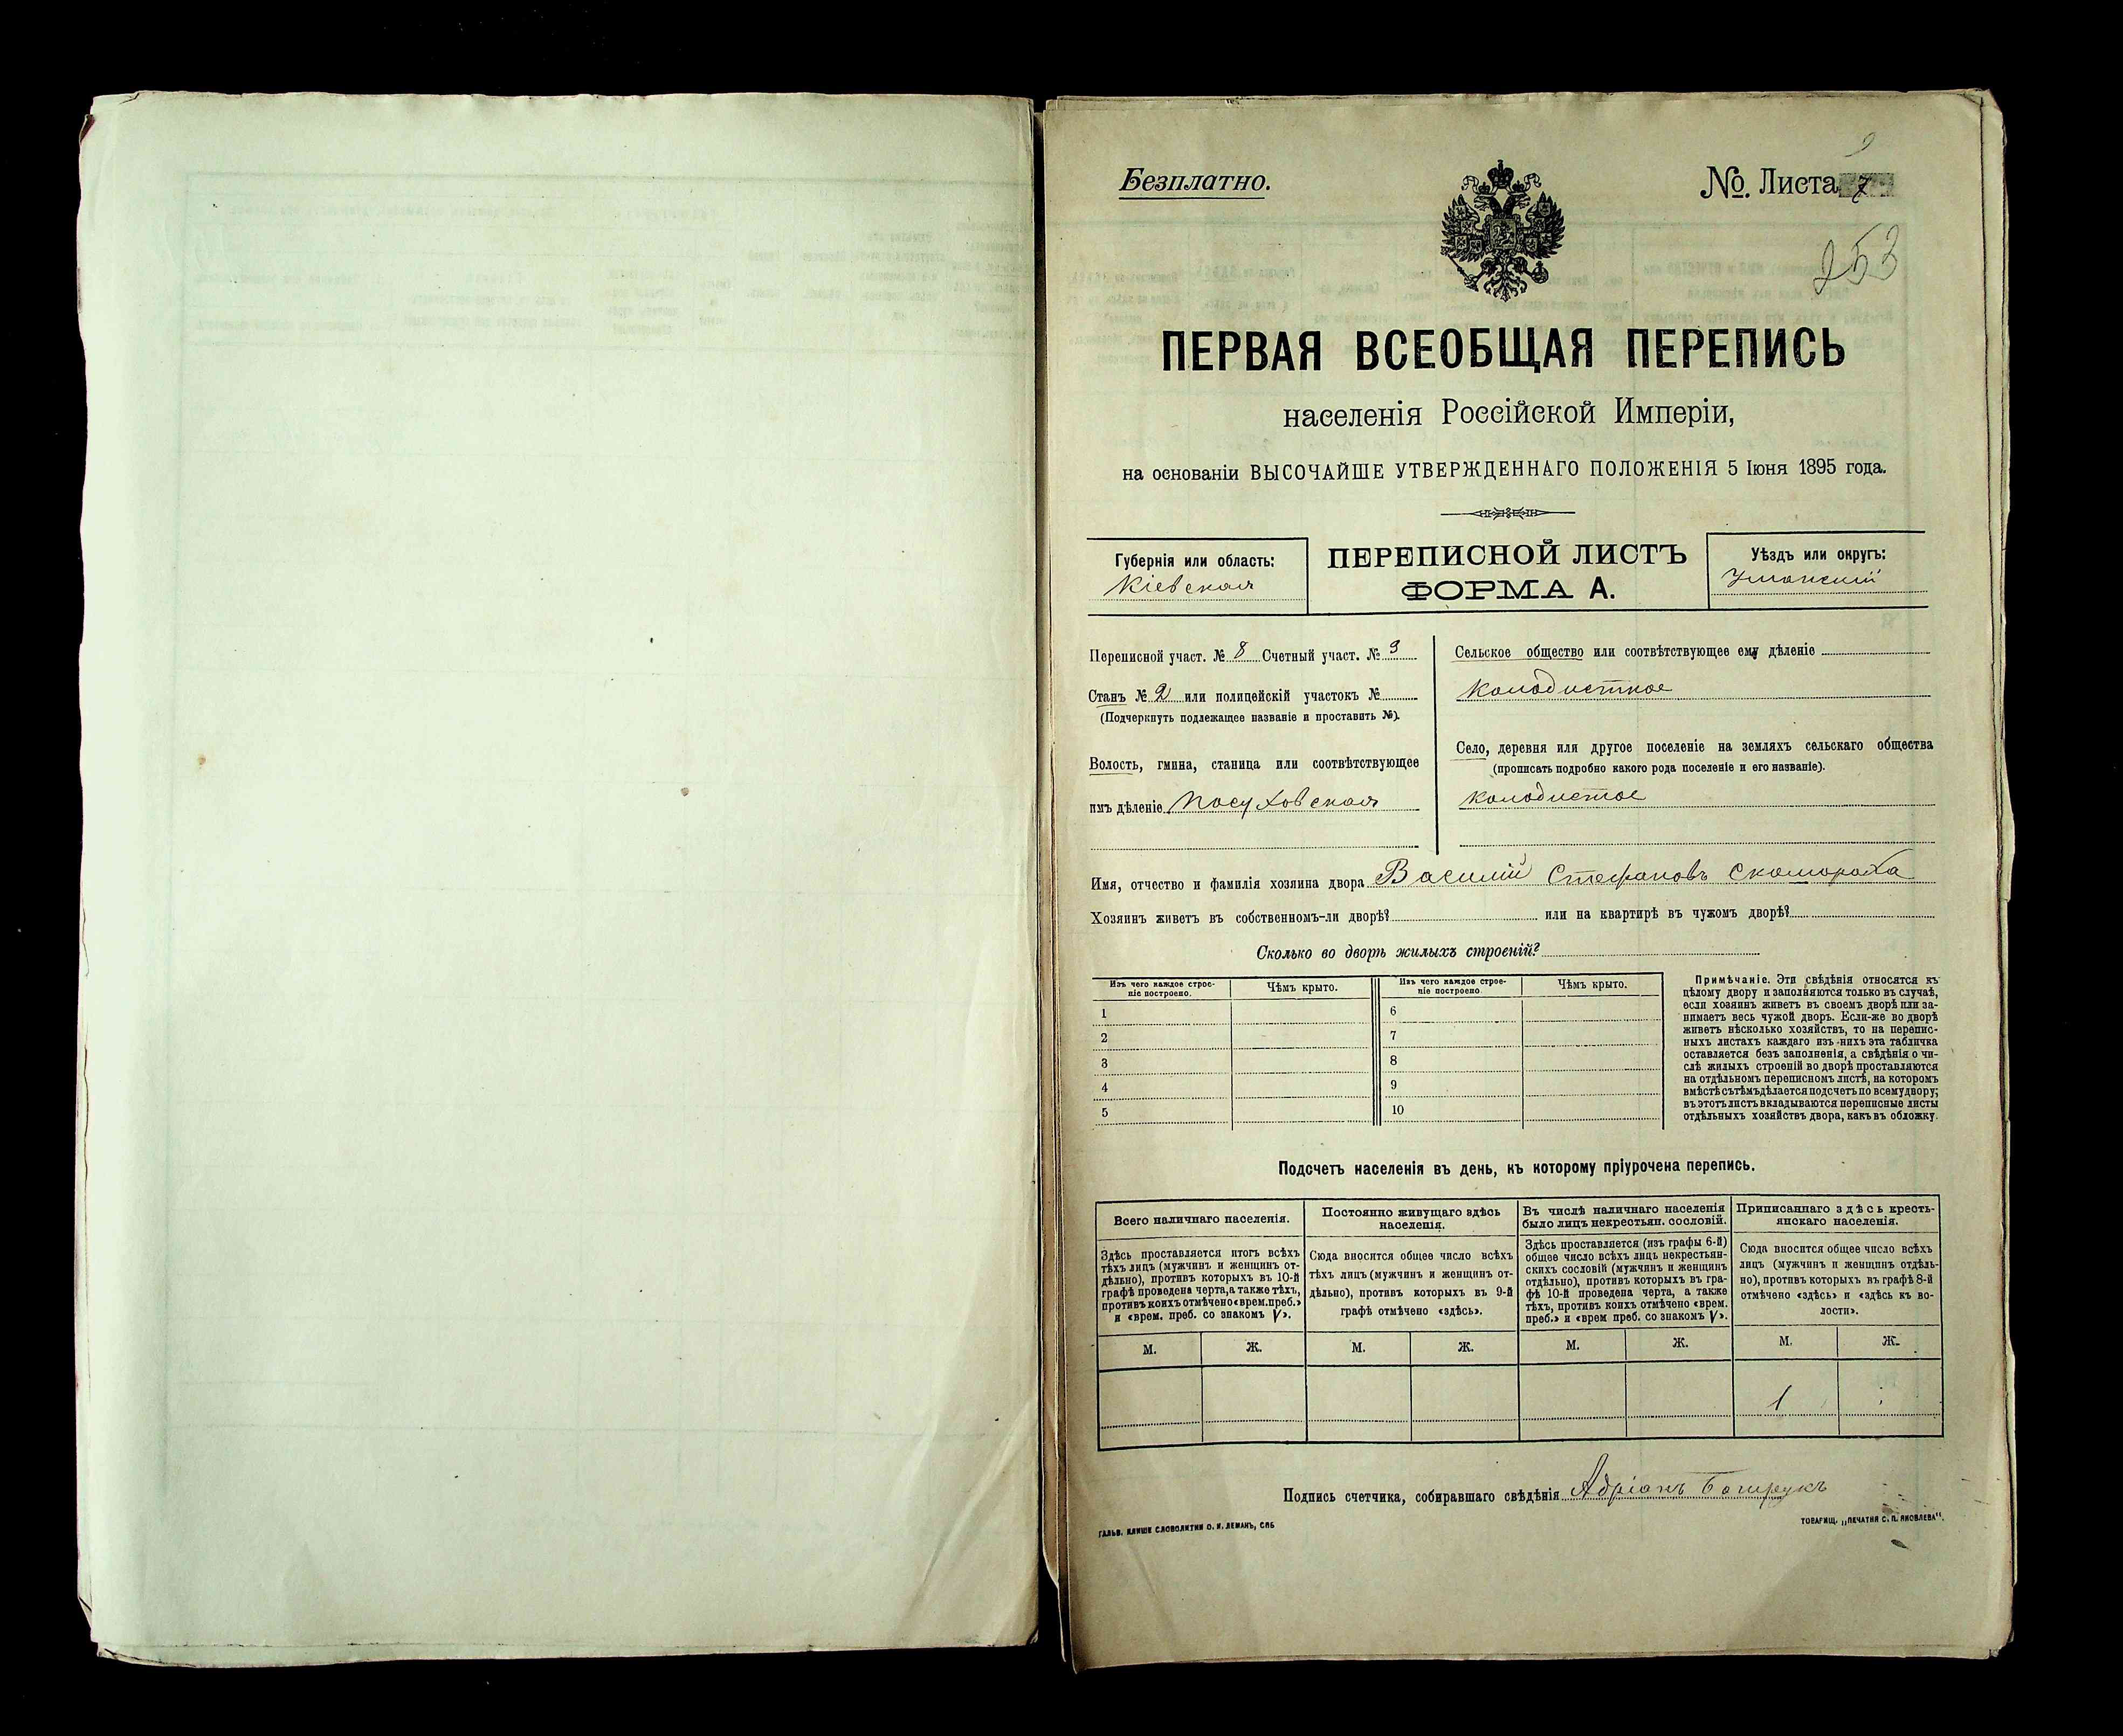 Безплатно.
№. Листа 7
253
ПЕРВАЯ ВСЕОБЩАЯ ПЕРЕПИСЬ
населенія Россійской Имперіи,
на основаніи ВЫСОЧАЙШЕ УТВЕРЖДЕННАГО ПОЛОЖЕНІЯ 5 Іюня 1895 года.
Губернія или область:
Кіевская
ПЕРЕПИСНОЙ ЛИСТЪ
ФОРМА А.
Уѣздъ или округъ:
Уманскій
Переписной участ. № 8 Счетный участ. № 3
Станъ № 2 или полицейскій участокъ №
(Подчеркнуть подлежащее названіе и проставить №).
Волость, гмина, станица или соотвѣтствующее
имъ дѣленіе Посуховская
Сельское общество или соотвѣтствующее ему дѣленіе
Колодистое
Село, деревня или другое поселеніе на земляхъ сельскаго общества
(прописать подробно какого рода поселеніе и его названіе).
Колодистое
Имя, отчество и фамилія хозяина двора Василій Стефановъ Скомороха
Хозяинъ живетъ въ собственномъ-ли дворѣ? или на квартирѣ въ чужомъ дворѣ?
Сколько во дворѣ жилыхъ строеній?
Изъ чего каждое строе-
ніе построено.
Чѣмъ крыто.
Изъ чего каждое строе-
ніе построено.
Чѣмъ крыто.
1
2
3
4
5
6
7
8
9
10
Примѣчаніе. Эти свѣдѣнія относятся къ
цѣлому двору и заполняются только въ случаѣ,
если хозяинъ живетъ въ своемъ дворѣ или за-
нимаетъ весь чужой дворъ. Если-же во дворѣ
живетъ нѣсколько хозяйствъ, то на перепис-
ныхъ листахъ каждаго изъ нихъ эта табличка
оставляется безъ заполненія, а свѣдѣнія о чи-
слѣ жилыхъ строеній во дворѣ проставляются
на отдѣльномъ переписномъ листѣ, на которомъ
вмѣстѣ съ тѣмъ дѣлается подсчетъ по всему двору;
въ этотъ листъ вкладываются переписные листы
отдѣльныхъ хозяйствъ двора, какъ въ обложку.
Подсчетъ населенія въ день, къ которому пріурочена перепись.
Всего наличнаго населенія.
Здѣсь проставляется итогъ всѣхъ
тѣхъ лицъ (мужчинъ и женщинъ от-
дѣльно), противъ которыхъ въ 10-й
графѣ проведена черта, а также тѣхъ,
противъ коихъ отмѣчено «врем. преб.»
и «врем. преб. со знакомъ V».
Постоянно живущаго здѣсь
населенія.
Сюда вносится общее число всѣхъ
тѣхъ лицъ (мужчинъ и женщинъ от-
дѣльно), противъ которыхъ въ 9-й
графѣ отмѣчено «здѣсь».
Въ числѣ наличнаго населенія
было лицъ некрестьян. сословій.
Здѣсь проставляется (изъ графы 6-й)
общее число всѣхъ лицъ некрестьян-
скихъ сословій (мужчинъ и женщинъ
отдѣльно), противъ которыхъ въ гра-
фѣ 10-й проведена черта, а также
тѣхъ, противъ коихъ отмѣчено «врем.
преб.» и «врем преб. со знакомъ V».
Приписаннаго здѣсь кресть-
янскаго населенія.
Сюда вносится общее число всѣхъ
лицъ (мужчинъ и женщинъ отдѣль-
но), противъ которыхъ въ графѣ 8-й
отмѣчено «здѣсь» и «здѣсь къ во-
лости».
М. Ж. М. Ж. М. Ж. М. Ж.
1
Подпись счетчика, собиравшаго свѣдѣнія Адріанъ
ГАЛЬВ. КЛИШЕ СЛОВОЛИТНИ О. И. ЛЕМАНЪ, СПБ
ТОВАРИЩ. „ПЕЧАТНЯ С. П. ЯКОВЛЕВА".